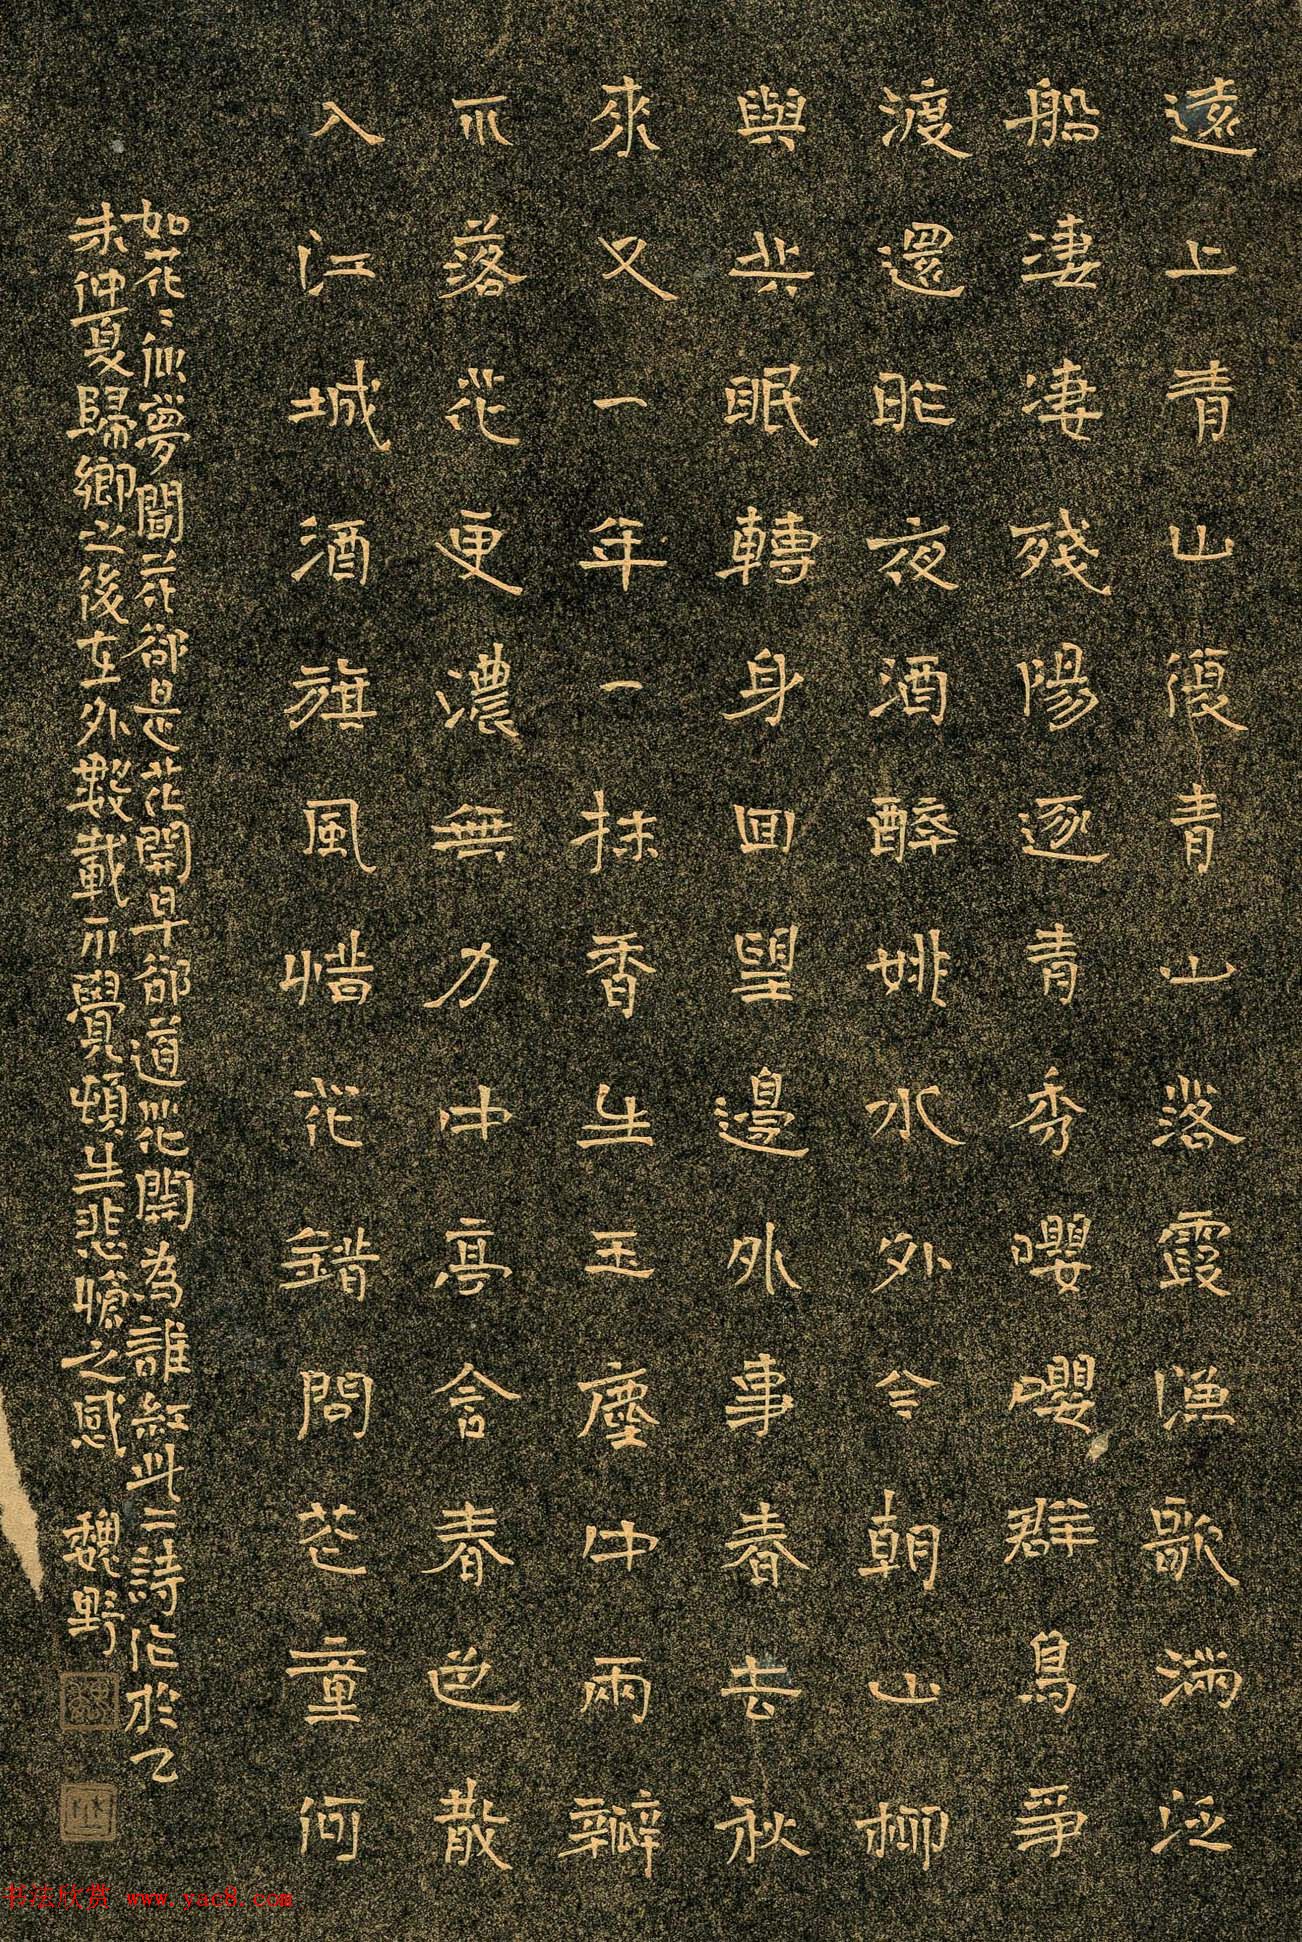 遠上青山復青山落霞漁歌滿泛
船淒淒殘陽逐青秀嚶嚶群鳥爭
渡還昨夜酒醉姚水外今朝山柳
與共眠轉身回望邊外事春去秋
來又一年一抹香生玉塵中兩瓣
不落花更濃無力中亭含春色散
入江城酒旗風惜花錯問花童何
如花〻夢聞花卻是花開早卻道花開為誰紅此三詩作於乙
未仲夏歸鄉之後在外數載不覺頓生悲愴之感 魏野
书法欣赏 www.yac8.com